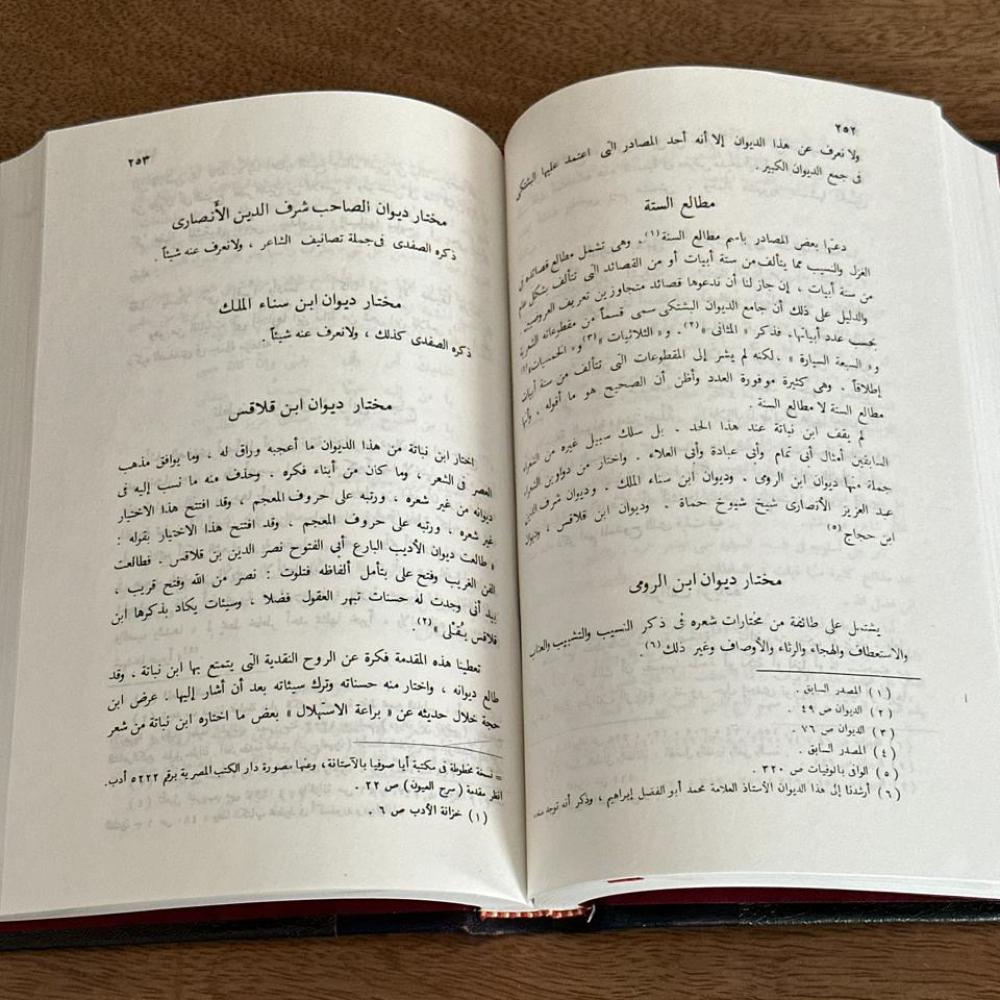 ٢٥٢
ولا نعرف عن هذا الديوان إلا أنه أحد المصادر التى اعتمد عليها البشتكى
فى جمع الديوان الكبير .
مطالع الستة
دعتها بعض المصادر باسم مطالع الستة (١) . وهى تشمل مطالع قصائده فى
الغزل والنسيب مما يتألف من ستة أبيات أو من القصائد التى تتألف بشكل عام
من ستة أبيات ، إن جاز لنا أن ندعوها قصائد متجاوزين تعريف العروضيين .
والدليل على ذلك أن جامع الديوان البشتكى سمى قسماً من مقطوعاته الشعرية
بحسب عدد أبياتها. فذكر « المثانى »(٢). و« الثلاثيات »(٣) و« الخمسيات»(٤)
و« السبعة السيارة » . لكنه لم يشر إلى المقطوعات التى تتألف من ستة أبيات
إطلاقاً . وهى كثيرة موفورة العدد وأظن أن الصحيح هو ما أقوله . وأنها
مطالع الستة لا مطالع الستة .
لم يقف ابن نباتة عند هذا الحد . بل سلك سبيل غيره من الشعراء
السابقين أمثال أبى تمام وأبى عبادة وأبى العلاء . واختار من دواوين الشعراء
جملة منها ديوان ابن الروى . وديوان ابن سناء الملك . وديوان شرف الدين
عبد العزيز الأنصارى شيخ شيوخ حماة . وديوان ابن قلاقس ، وديوان
ابن حجاج (٥)
مختار ديوان ابن الرومى
يشتمل على طائفة من مختارات شعره فى ذكر النسيب والتشبيب والعتاب
والاستعطاف والهجاء والرثاء والأوصاف وغير ذلك(٦).
(١) المصدر السابق .
(٢) الديوان ص ٤٩ .
(٣) الديوان ص ٧٦ .
(٤) المصدر السابق .
(٥) الوافى بالوفيات ص ٣٢٠ .
(٦) أرشدنا إلى هذا الديوان الأستاذ العلامة محمد أبو الفضل إبراهيم ، وذكر أنه توجد منه
٢٥٣
مختار ديوان الصاحب شرف الدين الأنصارى
ذكره الصفدى فى جملة تصانيف الشاعر ، ولا نعرف عنه شيئاً .
مختار ديوان ابن سناء الملك
ذكره الصفدى كذلك ، ولا نعرف عنه شيئاً .
مختار ديوان ابن قلاقس
اختار ابن نباتة من هذا الديوان ما أعجبه وراق له ، وما يوافق مذهب
العصر فى الشعر ، وما كان من أبناء فكره . وحذف منه ما نسب إليه فى
ديوانه من غير شعره ، ورتبه على حروف المعجم ، وقد افتتح هذا الاختيار
غير شعره ، ورتبه على حروف المعجم ، وقد افتتح هذا الاختيار بقوله :
« طالعت ديوان الأديب البارع أبي الفتوح نصر الدين بن قلاقس . فطالعت
الفن الغريب وفتح على بتأمل ألفاظه فتلوت : نصر من الله وفتح قريب ،
بيد أنى وجدت له حسنات تبهر العقول فضلا ، وسيئات يكاد بذكرها ابن
قلاقس يُقْلى » (٢).
تعطينا هذه المقدمة فكرة عن الروح النقدية التى يتمتع بها ابن نباتة . وقد
طالع ديوانه ، واختار منه حسناته وترك سيئاته بعد أن أشار إليها . عرض ابن
حجة خلال حديثه عن « براعة الاستهلال » بعض ما اختاره ابن نباتة من شعر
= نسخة مخطوطة فى مكتبة أيا صوفيا بالآستانة ، وعنها مصورة دار الكتب المصرية برقم ٥٢٢٢ أدب.
انظر مقدمة (سرح العيون) ص ٢٢ .
(١) خزانة الأدب ص ٦ .